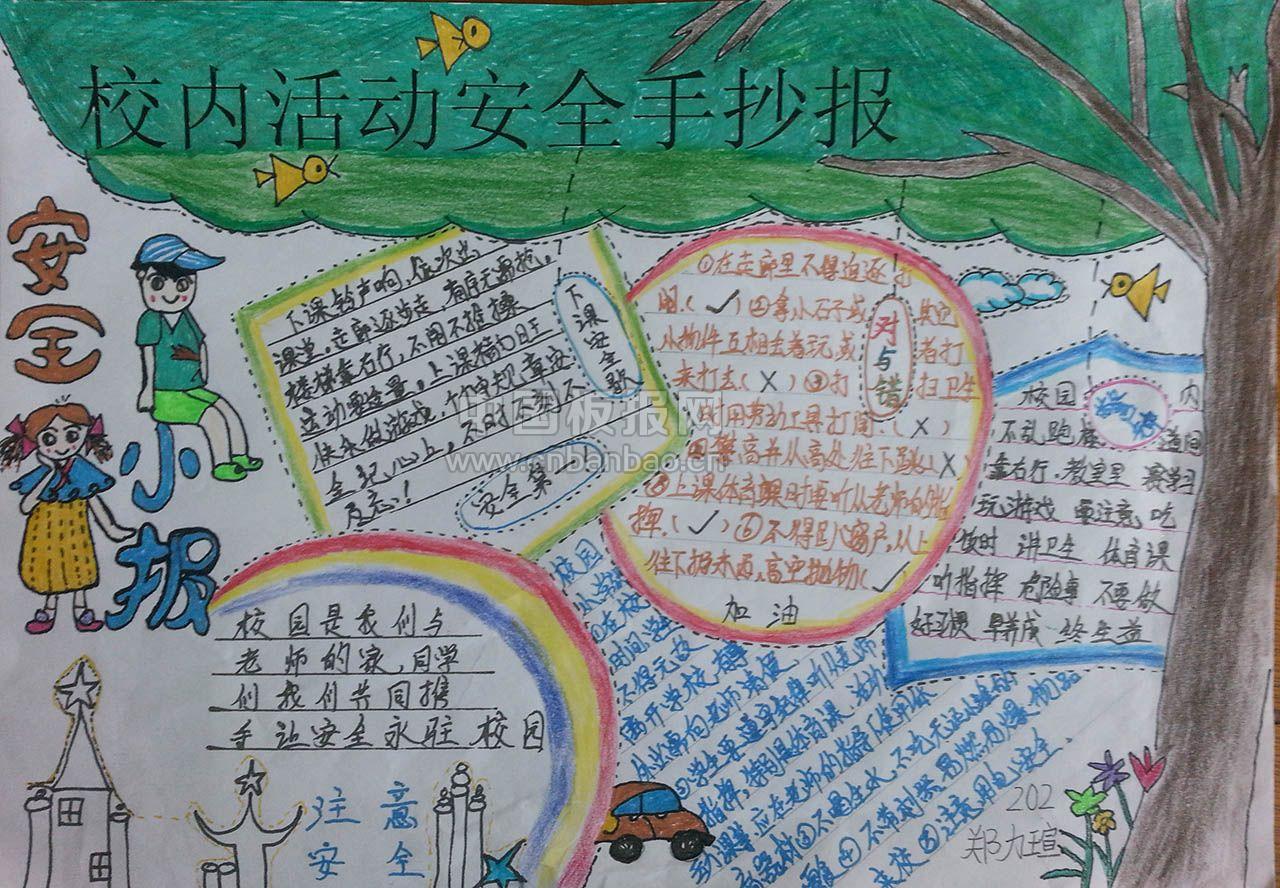 校内活动安全手抄报
安全小报
下课铃声响,依次出
课堂。走廊逐步走,有序无拥挤。
楼梯靠右行,不闹不推操
运动要适量。上课精力旺
快乐做游戏,个个守规章安
全记心上。不时不刻不
反忘!
下课安全歌
安全第一
①在走廊里不得追逐打
闹.(✓)②拿小石子或其他
小物件互相丢着玩,或者打
来打去(X)③打扫卫生
时用劳动工具打闹(X)
④攀高并从高处往下跳(X)
⑤上课体育课时要听从老师的指
挥.(✓)⑥不得趴窗户,从上
往下报东西,高空抛物(✓
加油
对与错
校园内
不乱跑 楼道间
靠右行.教室里 赛学习
玩游戏 要注意,吃
饭时 讲卫生 体育课
听指挥 危险事 不要做
好习惯 早养成 终生益
校园是我们与
老师的家,同学
们我们共同携
手让安全永驻校园
注意
安全
校园
①在校
时间学生
不得无故
离开学校有事
外出要向老师请假
②学生要遵守
指挥,特别是体育课 活
应在老师的指导下使用体
育器材③不喝生水,不吃无证
④不带刺 易燃易爆物品
来校⑤注意用电安全.
202
郑九瑄
中国板报网
www.cnbanbao.cn